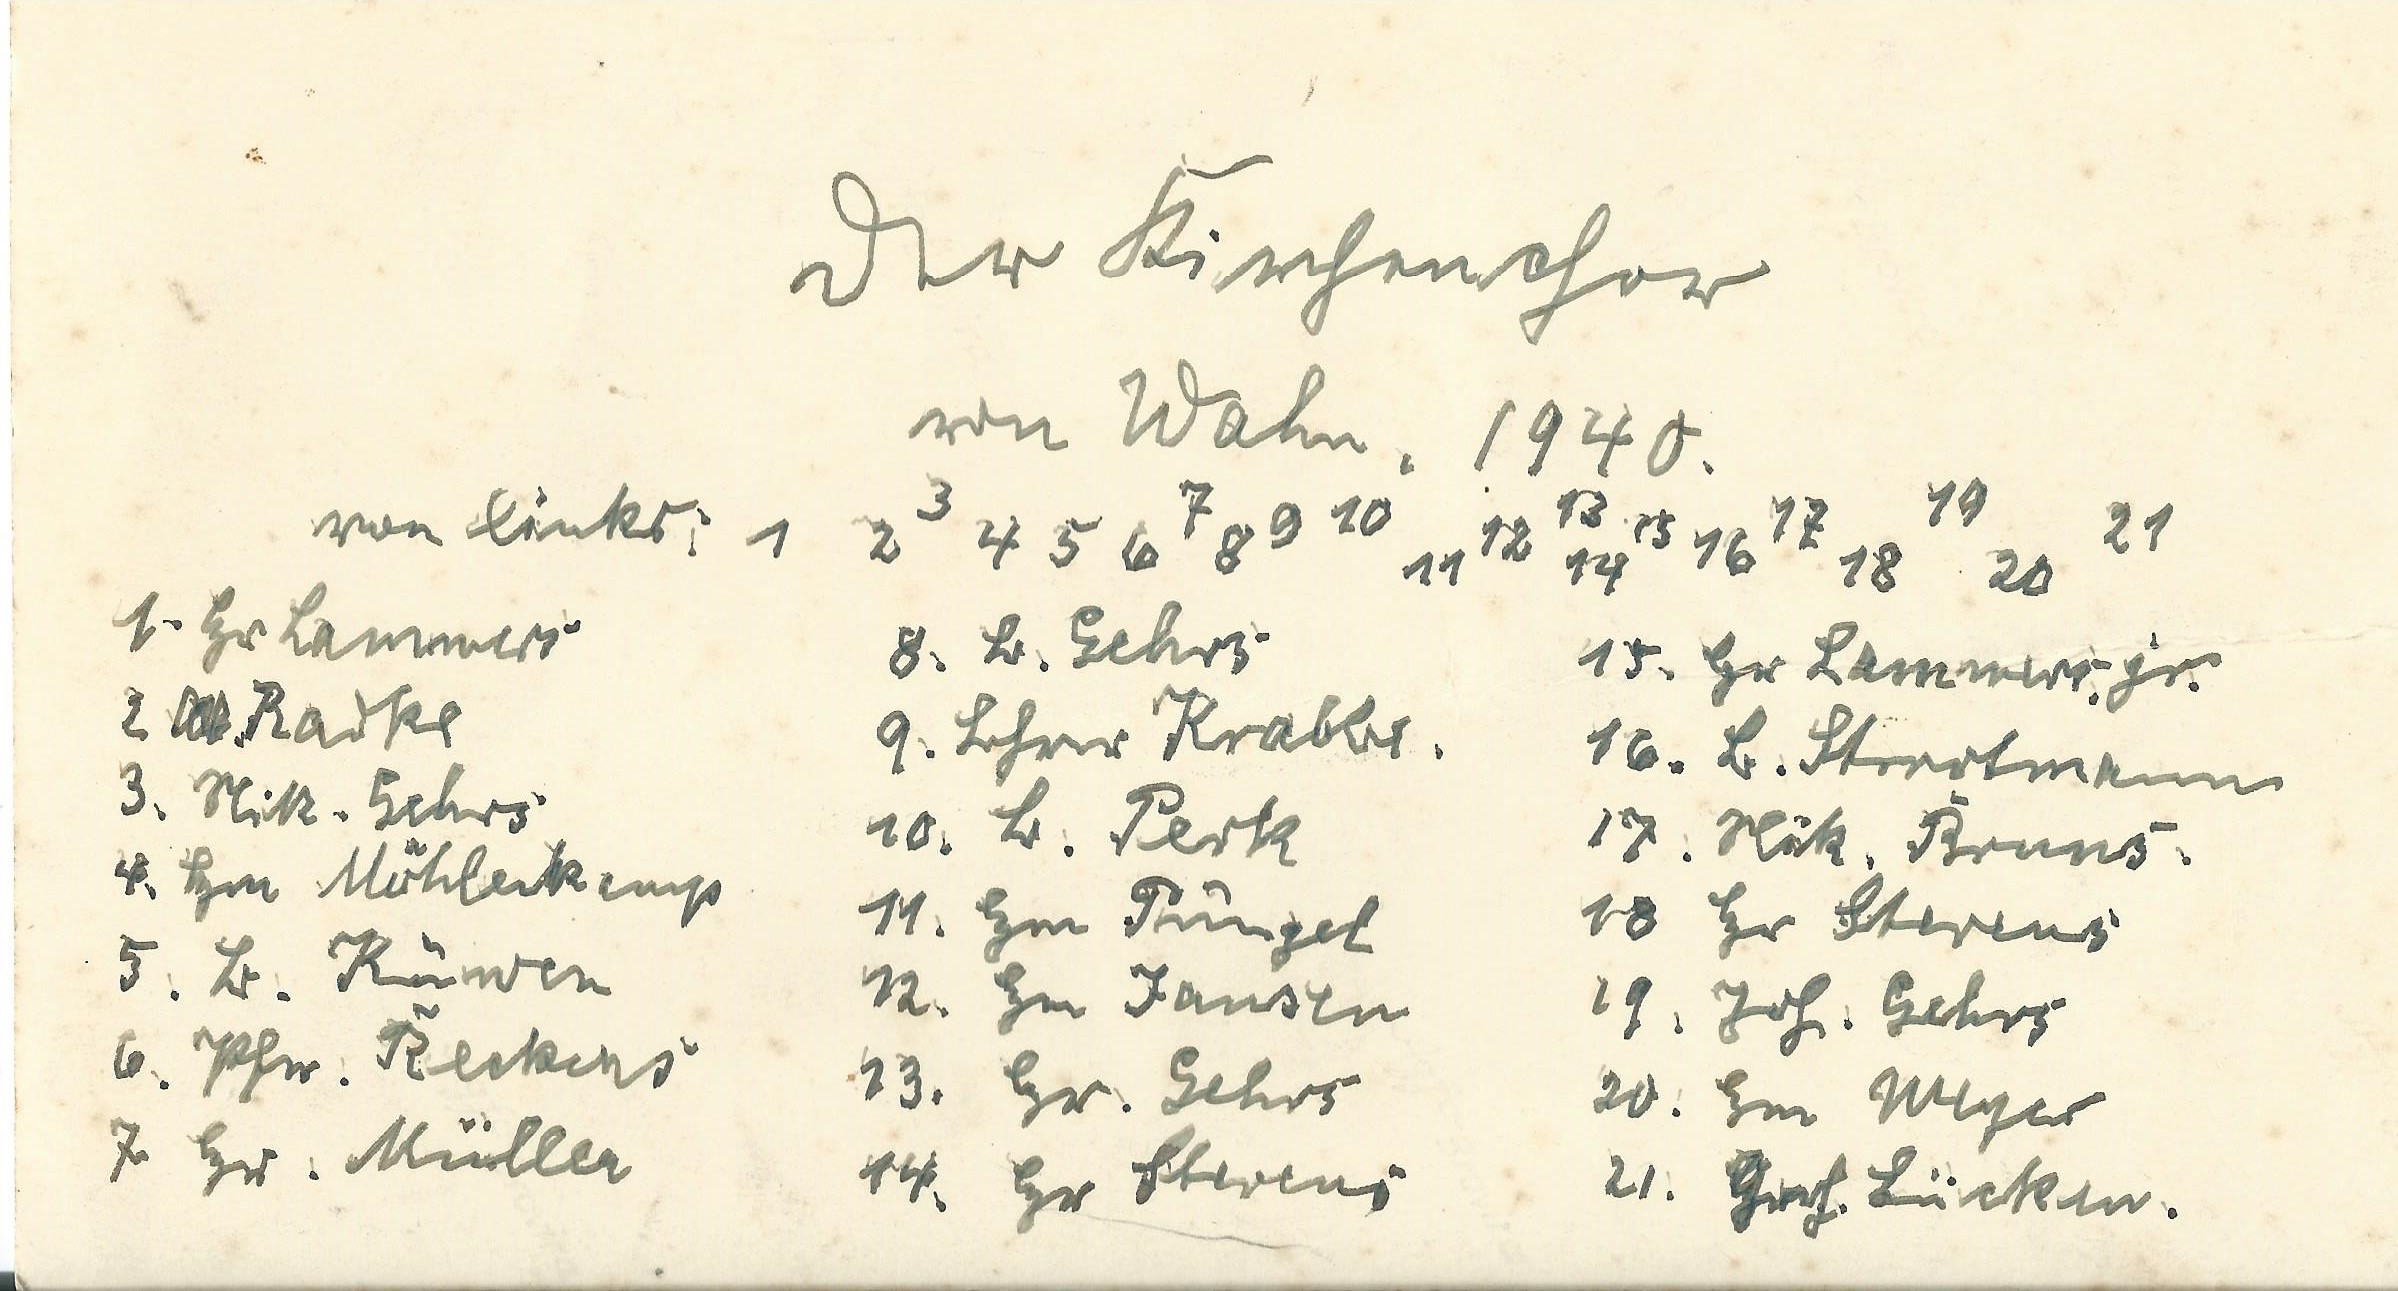 Der Kirchenchor
von Wahn. 1940.
von links: 1 2 3 4 5 6 7 8 9 10 11 12 13 14 15 16 17 18 19 20 21
1. Hr Lammers
2 Radke
3. Nik. Gehrs
4. Hm Möhlenkamp
5. B. Küwen
6. Pfr. Reckers
7. Hr. Müller
8. B. Gehrs
9. Lehrer Krabbe.
10. B. Perk
11. Hm Püngel
12. Hm Jansen
13. Hr. Gehrs
14. Hr Stevens
15. Hr Lammers jr.
16. B. Strootmann
17. Nik. Bruns.
18 Hr Stevens
19. Joh. Gehrs
20. Hm Meyer
21. Gerh. Lücken.